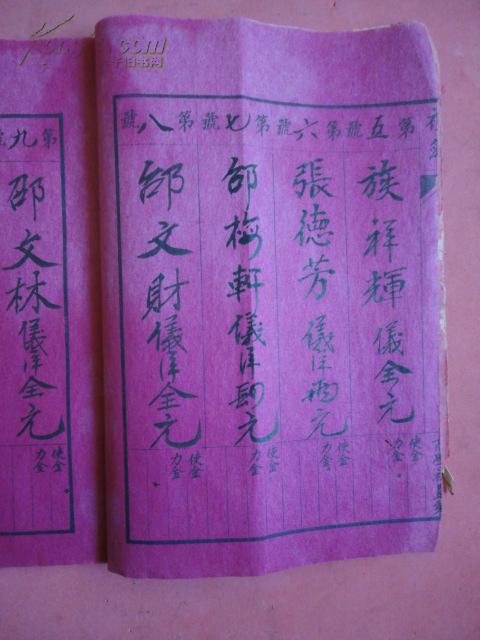 第五號
族祥輝儀全元
使金
力金
第六號
張德芳儀洋兩元
使金
力金
第七號
邰梅軒儀洋肆元
使金
力金
第八號
邰文財儀洋全元
使金
力金
第九號
邵文林儀洋全元
使金
力金